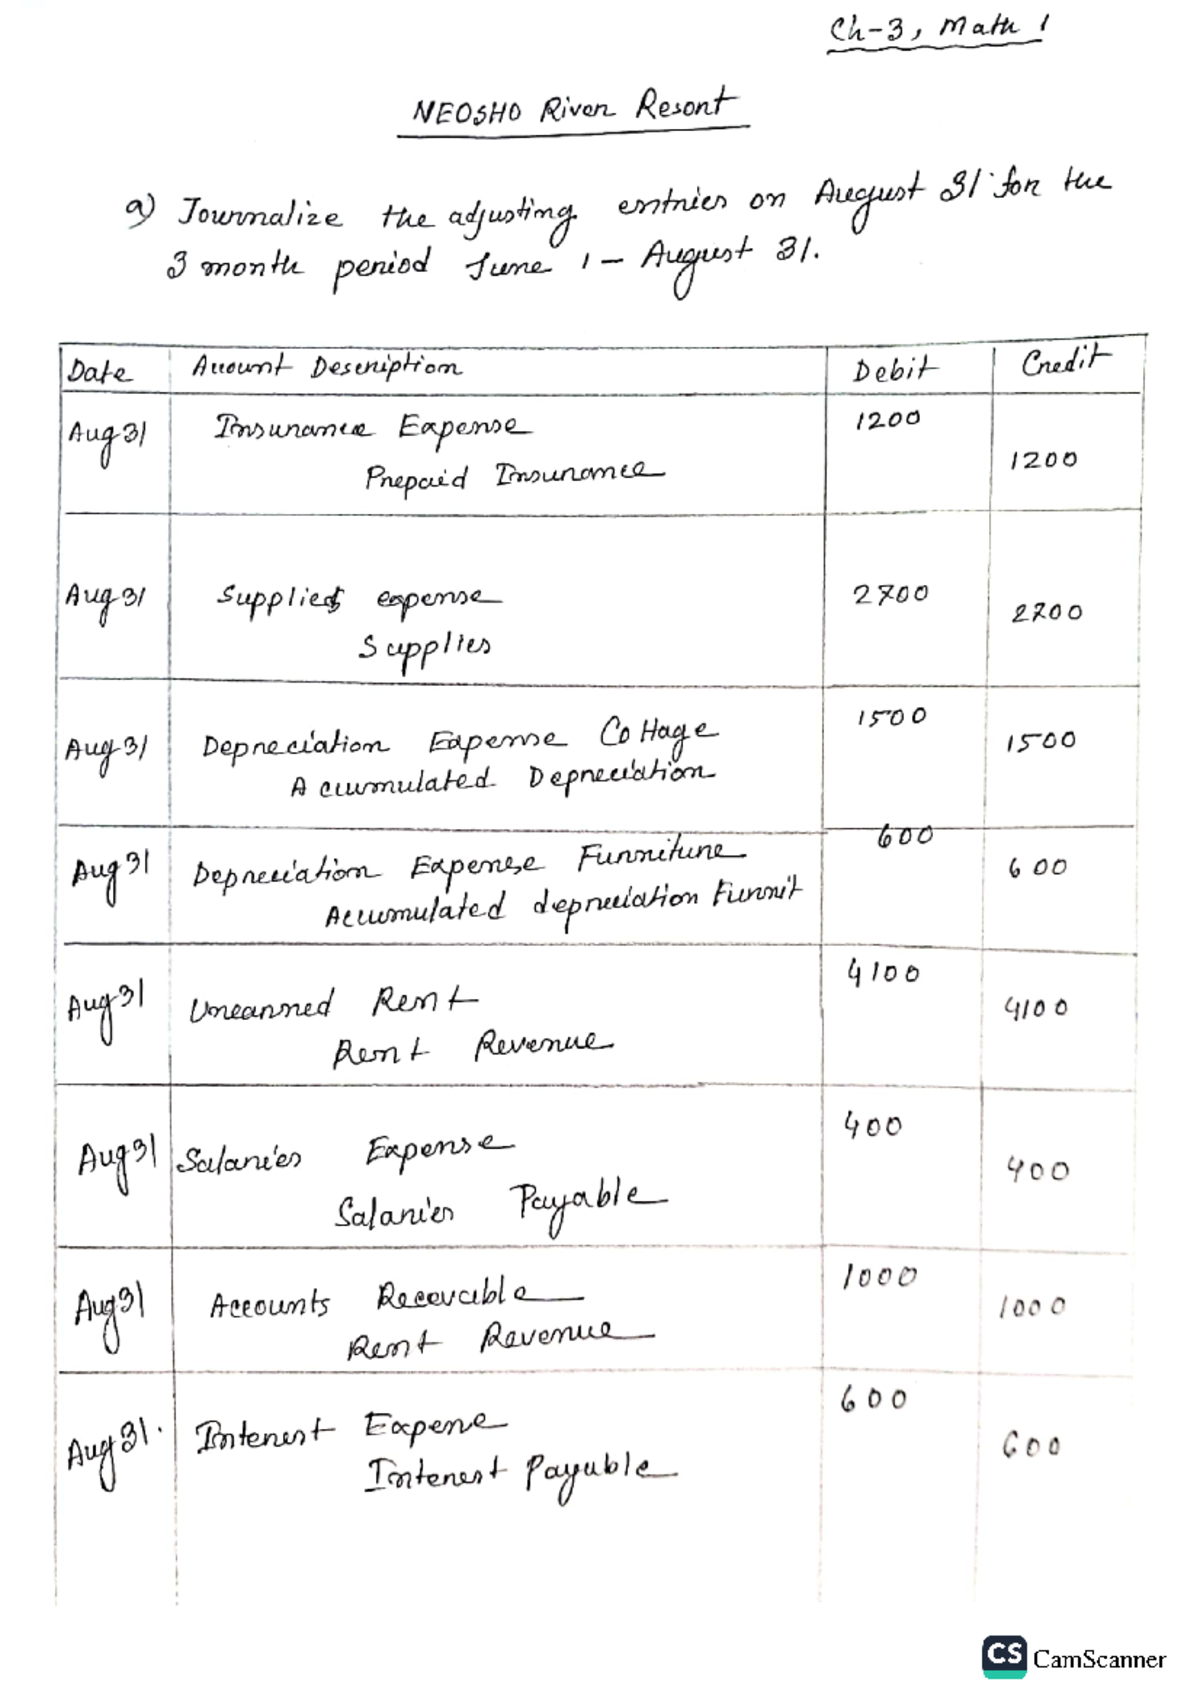 Ch-3, Math 1
NEOSHO River Resort
a) Journalize the adjusting entries on August 31 for the
3 month period June 1 - August 31.
Date Account Description Debit Credit
Aug 31 Insurance Expense 1200
Prepaid Insurance 1200
Aug 31 Supplies expense 2700
Supplies 2700
Aug 31 Depreciation Expense Cottage 1500
Accumulated Depreciation 1500
Aug 31 Depreciation Expense Furniture 600
Accumulated depreciation Furnit 600
Aug 31 Unearned Rent 4100
Rent Revenue 4100
Aug 31 Salaries Expense 400
Salaries Payable 400
Aug 31 Accounts Recevable 1000
Rent Revenue 1000
Aug 31. Interest Expene 600
Interest Payable 600
CS CamScanner